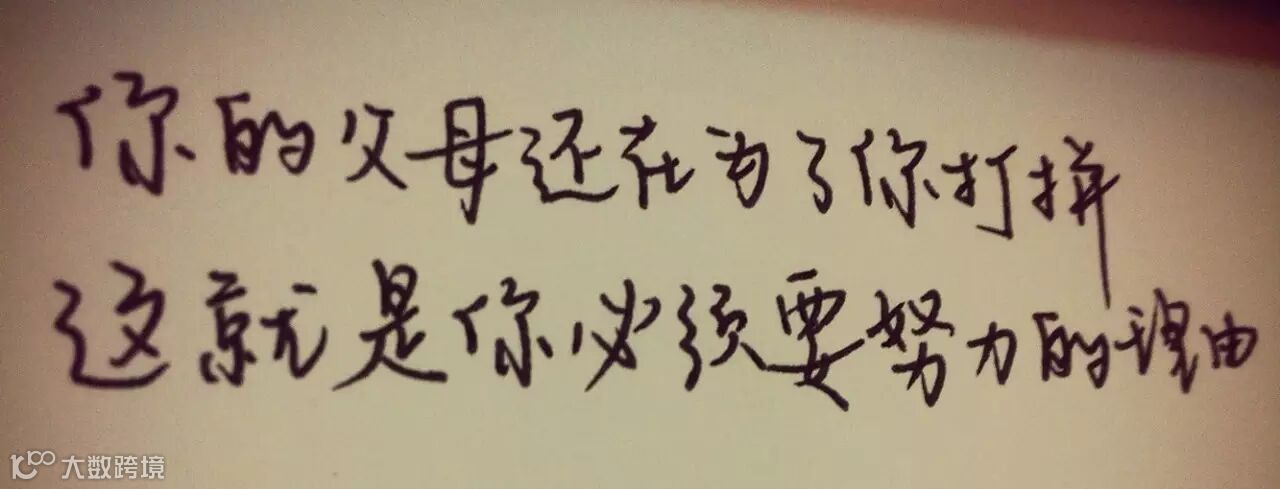 你的父母还在为了你打拼
这就是你必须要努力的理由
大数跨境